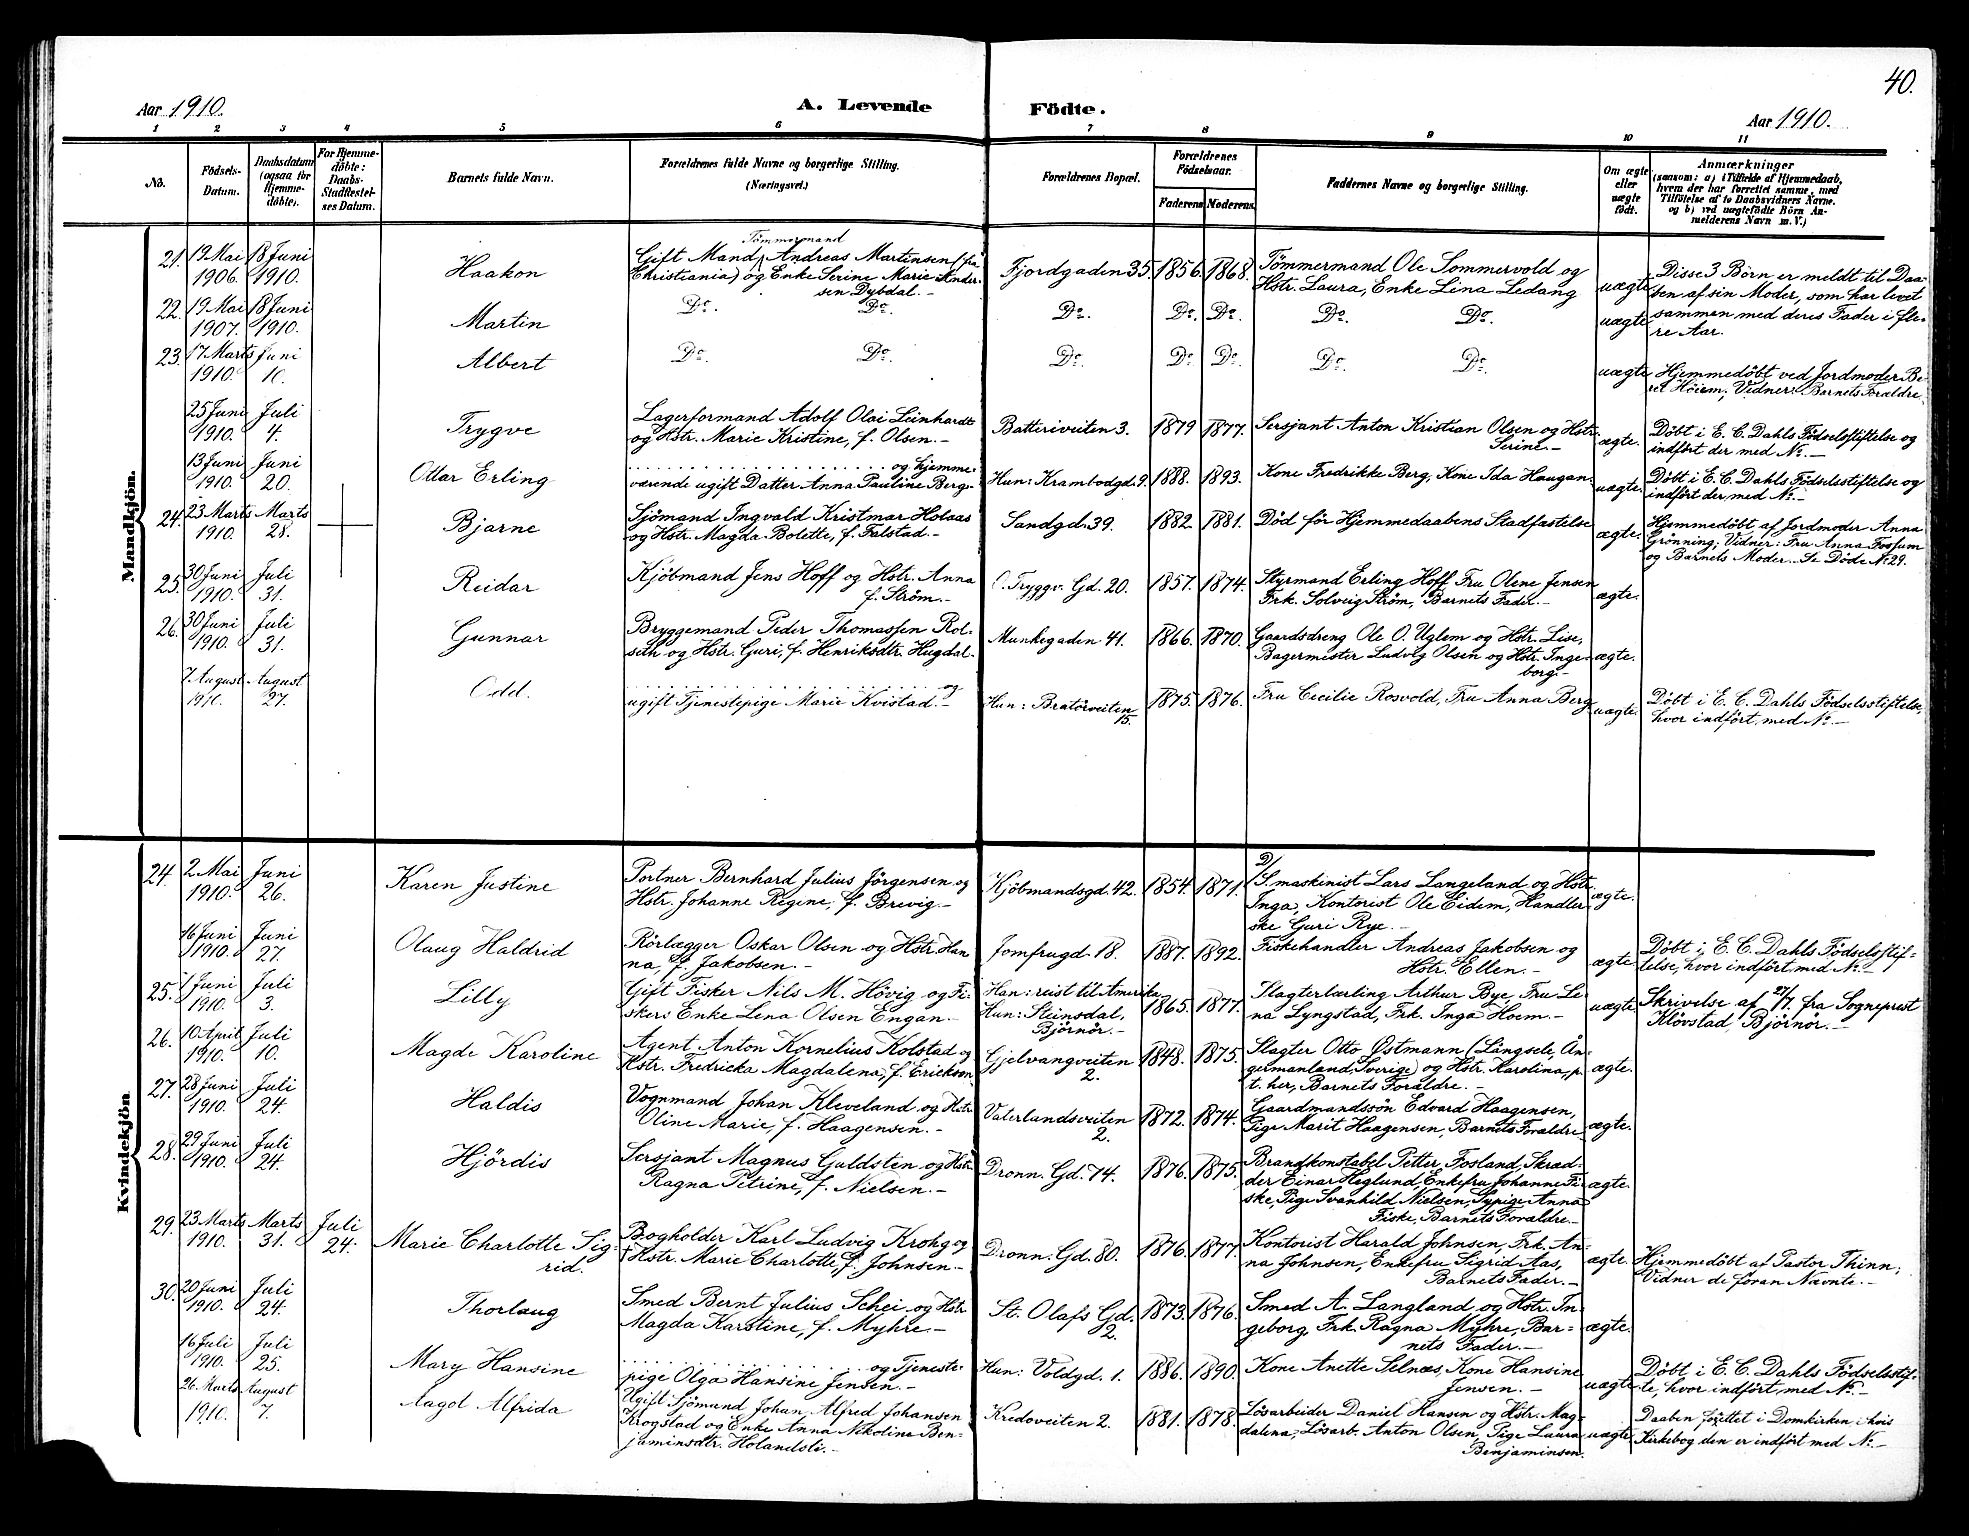 40.
Aar 1910. A. Levende Födte. Aar 1910.
1 2 3 4 5 6 7 8 9 10 11
No. Födsels-Datum. Daabsdatum (ogsaa for Hjemme-döbte). For Hjemme-döbte: Daabs-Stadfæstel-ses Datum. Barnets fulde Navn. Forældrenes fulde Navne og borgerlige Stilling. (Næringsvei.) Forældrenes Bopæl. Forældrenes Födselsaar. Faderens. Moderens. Faddernes Navne og borgerlige Stilling. Om ægte eller uægte födt. Anmærkninger (saasom: a) i Tilfælde af Hjemmedaab, hvem der har forrettet samme, med Tilföielse af to Daabsvidners Navne, og b) ved uægtefödte Börn An-melderens Navn m. V.)
Mandkjön.
21. 19 Mai 1906. 18 Juni 1910. Haakon Gift Mand, Tömmermand Andreas Martinsen (fra Christiania) og Enke Serine Marie Andersen Dybdal.- Fjordgaden 35. 1856. 1868. Tömmermand Ole Sommervold og Hstr. Laura, Enke Lina Ledang uægte Disse 3 Börn er meldt til Daaben af sin Moder, som har levet sammen med deres Fader i flere Aar.
22. 19 Mai 1907. 18 Juni 1910. Martin Do. Do. Do. Do. Do. Do. Do. uægte
23. 17 Marts 1910. Juni 10. Albert Do. Do. Do. Do. Do. Do. Do. uægte Hjemmedöbt ved Jordmoder Beret Höiem; Vidner: Barnets Forældre.
25 Juni 1910. Juli 4. Trygve Lagerformand Adolf Olai Leinhardt og Hstr. Marie Kristine, f. Olsen.- Batteriveiten 3. 1879 1877. Sersjant Anton Kristian Olsen og Hstr. Serine.- ægte. Döbt i E. C. Dahls Födselsstiftelse og indfört der med No.-
13 Juni 1910. Juni 20. Ottar Erling . . . . . og hjemmeværende ugift Datter Anna Pauline Berg.- Hun: Krambodgd. 9. 1888. 1893. Kone Fredrikke Berg, Kone Ida Haugan. uægte. Döbt i E. C. Dahls Födselsstiftelse og indfört der med No.-
24. 23 Marts 1910. Marts 28. Bjarne Sjömand Ingvald Kristmar Holaas og Hstr. Magda Bolette, f. Falstad.- Sandgd. 39. 1882. 1881. Död för Hjemmedaabens Stadfæstelse ægte. Hjemmedöbt af Jordmoder Anna Grönning; Vidner: Fru Anna Fossum og Barnets Moder. Se Döde No 29.
25. 30 Juni 1910. Juli 31. Reidar Kjöbmand Jens Hoff og Hstr. Anna f. Ström.- O. Tryggv. Gd. 20. 1857. 1874. Styrmand Erling Hoff Fru Olene Jensen Frk. Solveig Ström, Barnets Fader.- ægte.
26. 30 Juni 1910. Juli 31. Gunnar Bryggemand Peder Thomassen Rolseth og Hstr. Guri, f. Henriksdtr. Hugdal.- Munkegaden 41. 1866. 1870. Gaardsdreng Ole O. Uglem og Hstr. Lise, Bagermester Ludvig Olsen og Hstr. Ingeborg.- ægte.
7 August 1910. August 27. Odd. . . . . . og ugift Tjenestepige Marie Kvistad.- Hun: Bratörveiten 15. 1875. 1876. Fru Cecilie Rosvold, Fru Anna Berg uægte. Döbt i E. C. Dahls Födselsstiftelse, hvor indfört med No.-
Kvindekjön
24. 2 Mai 1910. Juni 26. Karen Justine Portner Bernhard Julius Jörgensen og Hstr. Johanne Regine, f. Brevig.- Kjöbmandsgd. 42. 1854. 1871. D/S. maskinist Lars Langeland og Hstr. Inga, Kontorist Ole Eidem, Handlerske Guri Rye.- ægte.
16 Juni 1910. Juni 27. Olaug Haldrid Rörlægger Oskar Olsen og Hstr. Hanna, f. Jakobsen.- Jomfrugd. 18. 1887. 1892. Fiskehandler Andreas Jakobsen og Hstr. Ellen.- ægte. Döbt i E. C. Dahls Födselsstiftelse, hvor indfört med No.-
25. 7 Juni 1910. Juli 3. Lilly Gift Fisker Nils M. Hövig og Fiskers Enke Lena Olsen Engan.- Han: reist til Amerika Hun: Steinsdal, Björnör.- 1865. 1877. Slagterlærling Arthur Bye, Fru Lena Lyngstad, Frk. Inga Hoem.- uægte. Skrivelse af 27/7 fra Sogneprest Klövstad, Björnör.-
26. 10 April 1910. Juli 10. Magde Karoline Agent Anton Kornelius Kolstad og Hstr. Fredricka Magdalena, f. Erickson Gjelvangveiten 2. 1848. 1875. Slagter Otto Östmann (Långsele, Ångermanland, Sverige) og Hstr. Karolina, p. t. her, Barnets Forældre.- ægte.
27. 28 Juni 1910. Juli 24. Haldis Vognmand Johan Kleveland og Hstr. Oline Marie, f. Haagensen.- Vaterlandsveiten 2. 1872. 1874. Gaardmandssön Edvard Haagensen, Pige Marit Haagensen, Barnets Forældre ægte.
28. 29 Juni 1910. Juli 24. Hjördis Sersjant Magnus Guldsten og Hstr. Ragna Petrine, f. Nielsen.- Dronn. Gd. 74. 1876. 1875. Brandkonstabel Petter Fosland, Skrædder Einar Heglund, Enkefru Johanne Fiske, Pige Svanhild Nielsen, Sypige Anna Fiske, Barnets Forældre.- ægte.
29. 23 Marts 1910. Marts 31. Juli 24. Marie Charlotte Sigrid. Bogholder Karl Ludvig Krohg og Hstr. Marie Charlotte, f. Johnsen.- Dronn. Gd. 80. 1876. 1877. Kontorist Harald Johnsen, Frk. Anna Johnsen, Enkefru Sigrid Aas, Barnets Fader.- ægte. Hjemmedöbt af Pastor Thinn; Vidner de foran Nævnte.-
30. 20 Juni 1910. Juli 24. Thorlaug Smed Bernt Julius Schei og Hstr. Magda Karstine, f. Myhre.- St. Olafs Gd. 2. 1873. 1876. Smed A. Langland og Hstr. Ingeborg, Frk. Ragna Myhre, Barnets Fader.- ægte.
16 Juli 1910. Juli 25. Mary Hansine . . . . . og Tjenestepige Olga Hansine Jensen.- Hun: Voldgd. 1. 1886. 1890. Kone Anette Selnæs, Kone Hansine Jensen.- uægte Döbt i E. C. Dahls Födselsstif-te, hvor indfört med No.-
26. Marts 1910. August 7. Aagot Alfrida Ugift Sjömand Johan Alfred Johansen Krogstad og Enke Anna Nikoline Benjaminsdtr. Holandsli.- Kredoveiten 2. 1881. 1878. Lösarbeider Daniel Hansen og Hstr. Magdalena, Lösarb. Anton Olsen, Pige Laura Benjaminsen. uægte Daaben forettet i Domkirken i hvis Kirkebog den er indfört med No.-